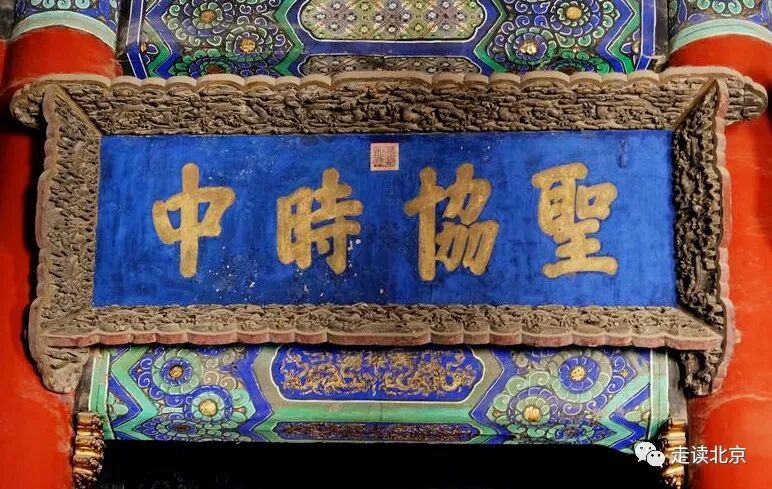 聖協時中
走读北京